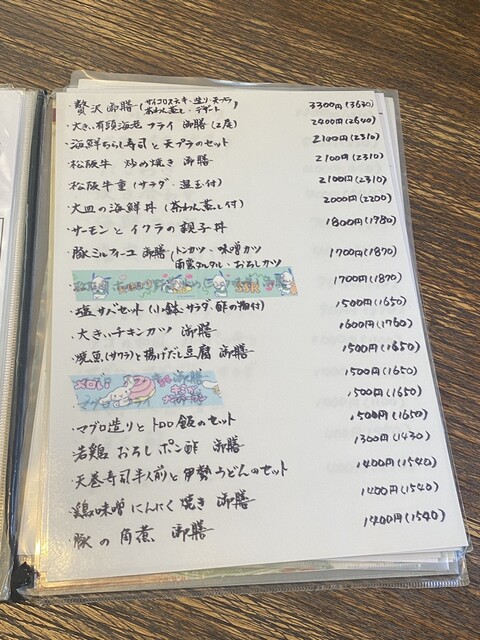 ・贅沢御膳(サイコロステーキ・造り・天ぷら 茶わん蒸し・デザート) 3300円(3630)
・大きい有頭海老フライ御膳(2尾) 2400円(2640)
・海鮮ちらし寿司と天プラのセット 2100円(2310)
・松阪牛 炒め焼き 御膳 2100円(2310)
・松阪牛重(サラダ・温玉付) 2100円(2310)
・大皿の海鮮丼(茶わん蒸し付) 2000円(2200)
・サーモンとイクラの親子丼 1800円(1980)
・豚ミルフィーユ御膳(トンカツ・味噌カツ 南蛮タルタル・おろしカツ 1700円(1870)
1700円(1870)
・塩サバセット(小鉢、サラダ、酢の物付) 1500円(1650)
・大きいチキンカツ 御膳 1600円(1760)
・焼魚(サワラ)と揚げだし豆腐 御膳 1500円(1650)
1500円(1650)
メロい
1500円(1650)
・マグロ造りとトロロ飯のセット 1500円(1650)
・若鶏おろしポン酢 御膳 1300円(1430)
・天巻寿司半人前と伊勢うどんのセット 1400円(1540)
・鶏味噌にんにく焼き 御膳 1400円(1540)
・豚の角煮 御膳 1400円(1540)